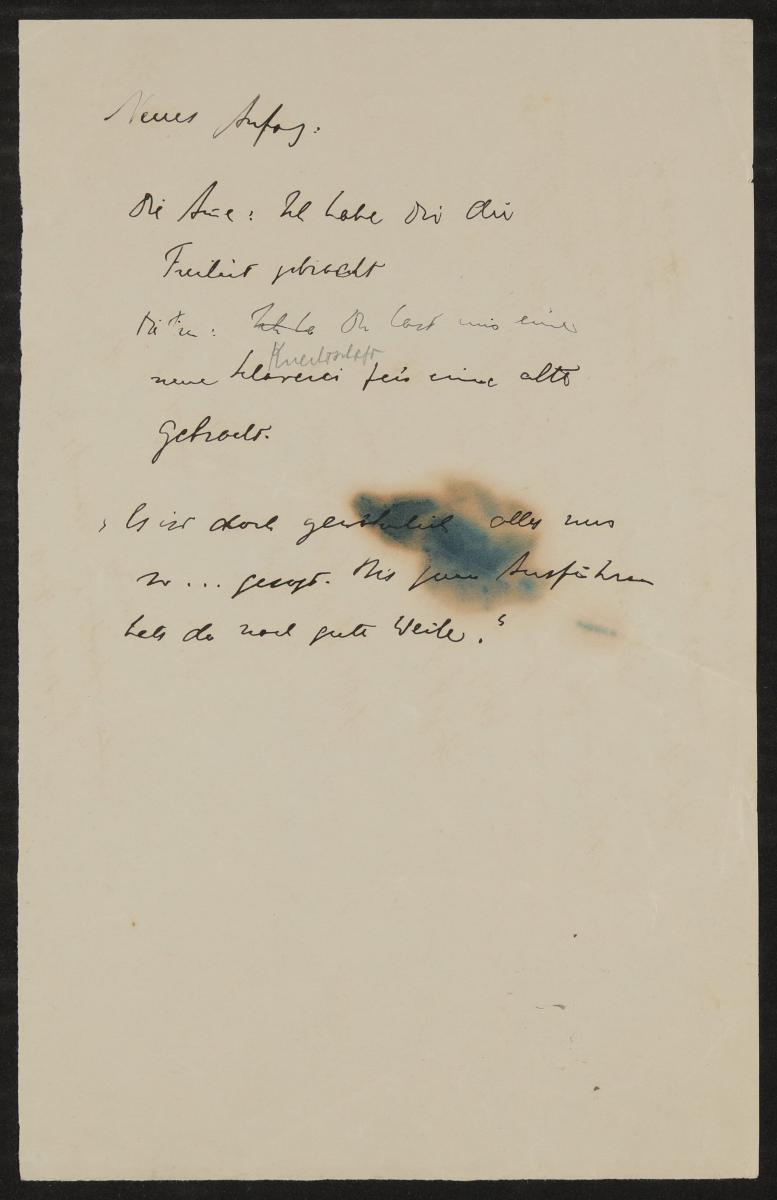 Neues Anfang:
Die Aue: Ich habe Dir die
Freiheit gebracht
Du hast uns eine
Knechtschaft
neue Sklaverei für eine alte
Gebracht.
„Es ist doch gewöhnlich alles nur
so ... gesagt. Bis zum Ausführen
hats da noch gute Weile."